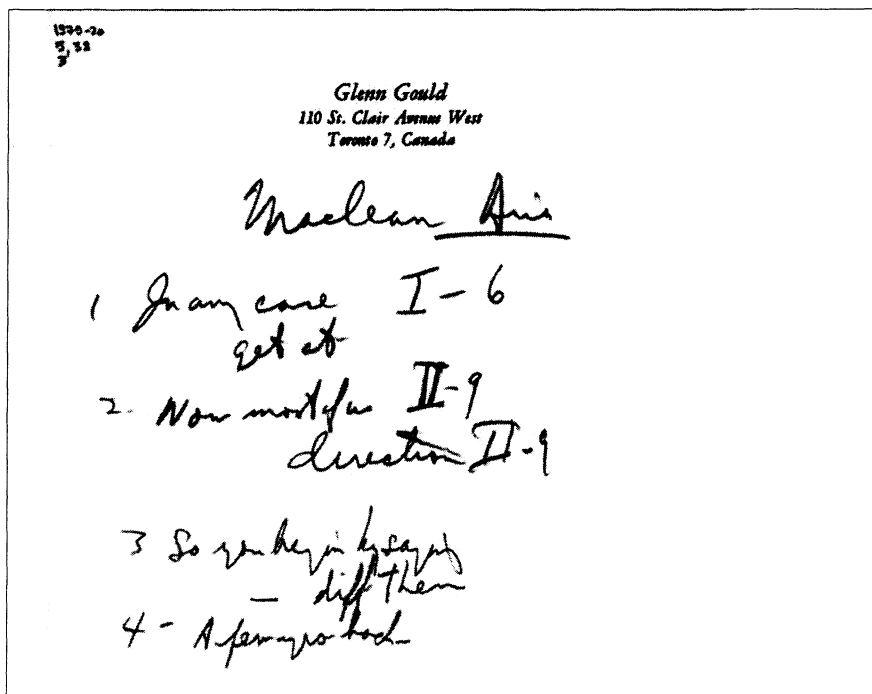 1979-20
5, 32
3
Glenn Gould
110 St. Clair Avenue West
Toronto 7, Canada
Maclean
1 In any case I - 6
get at
2. Now most of us II-9
direction II-9
3 So you begin by saying
— diff them
4 - A few